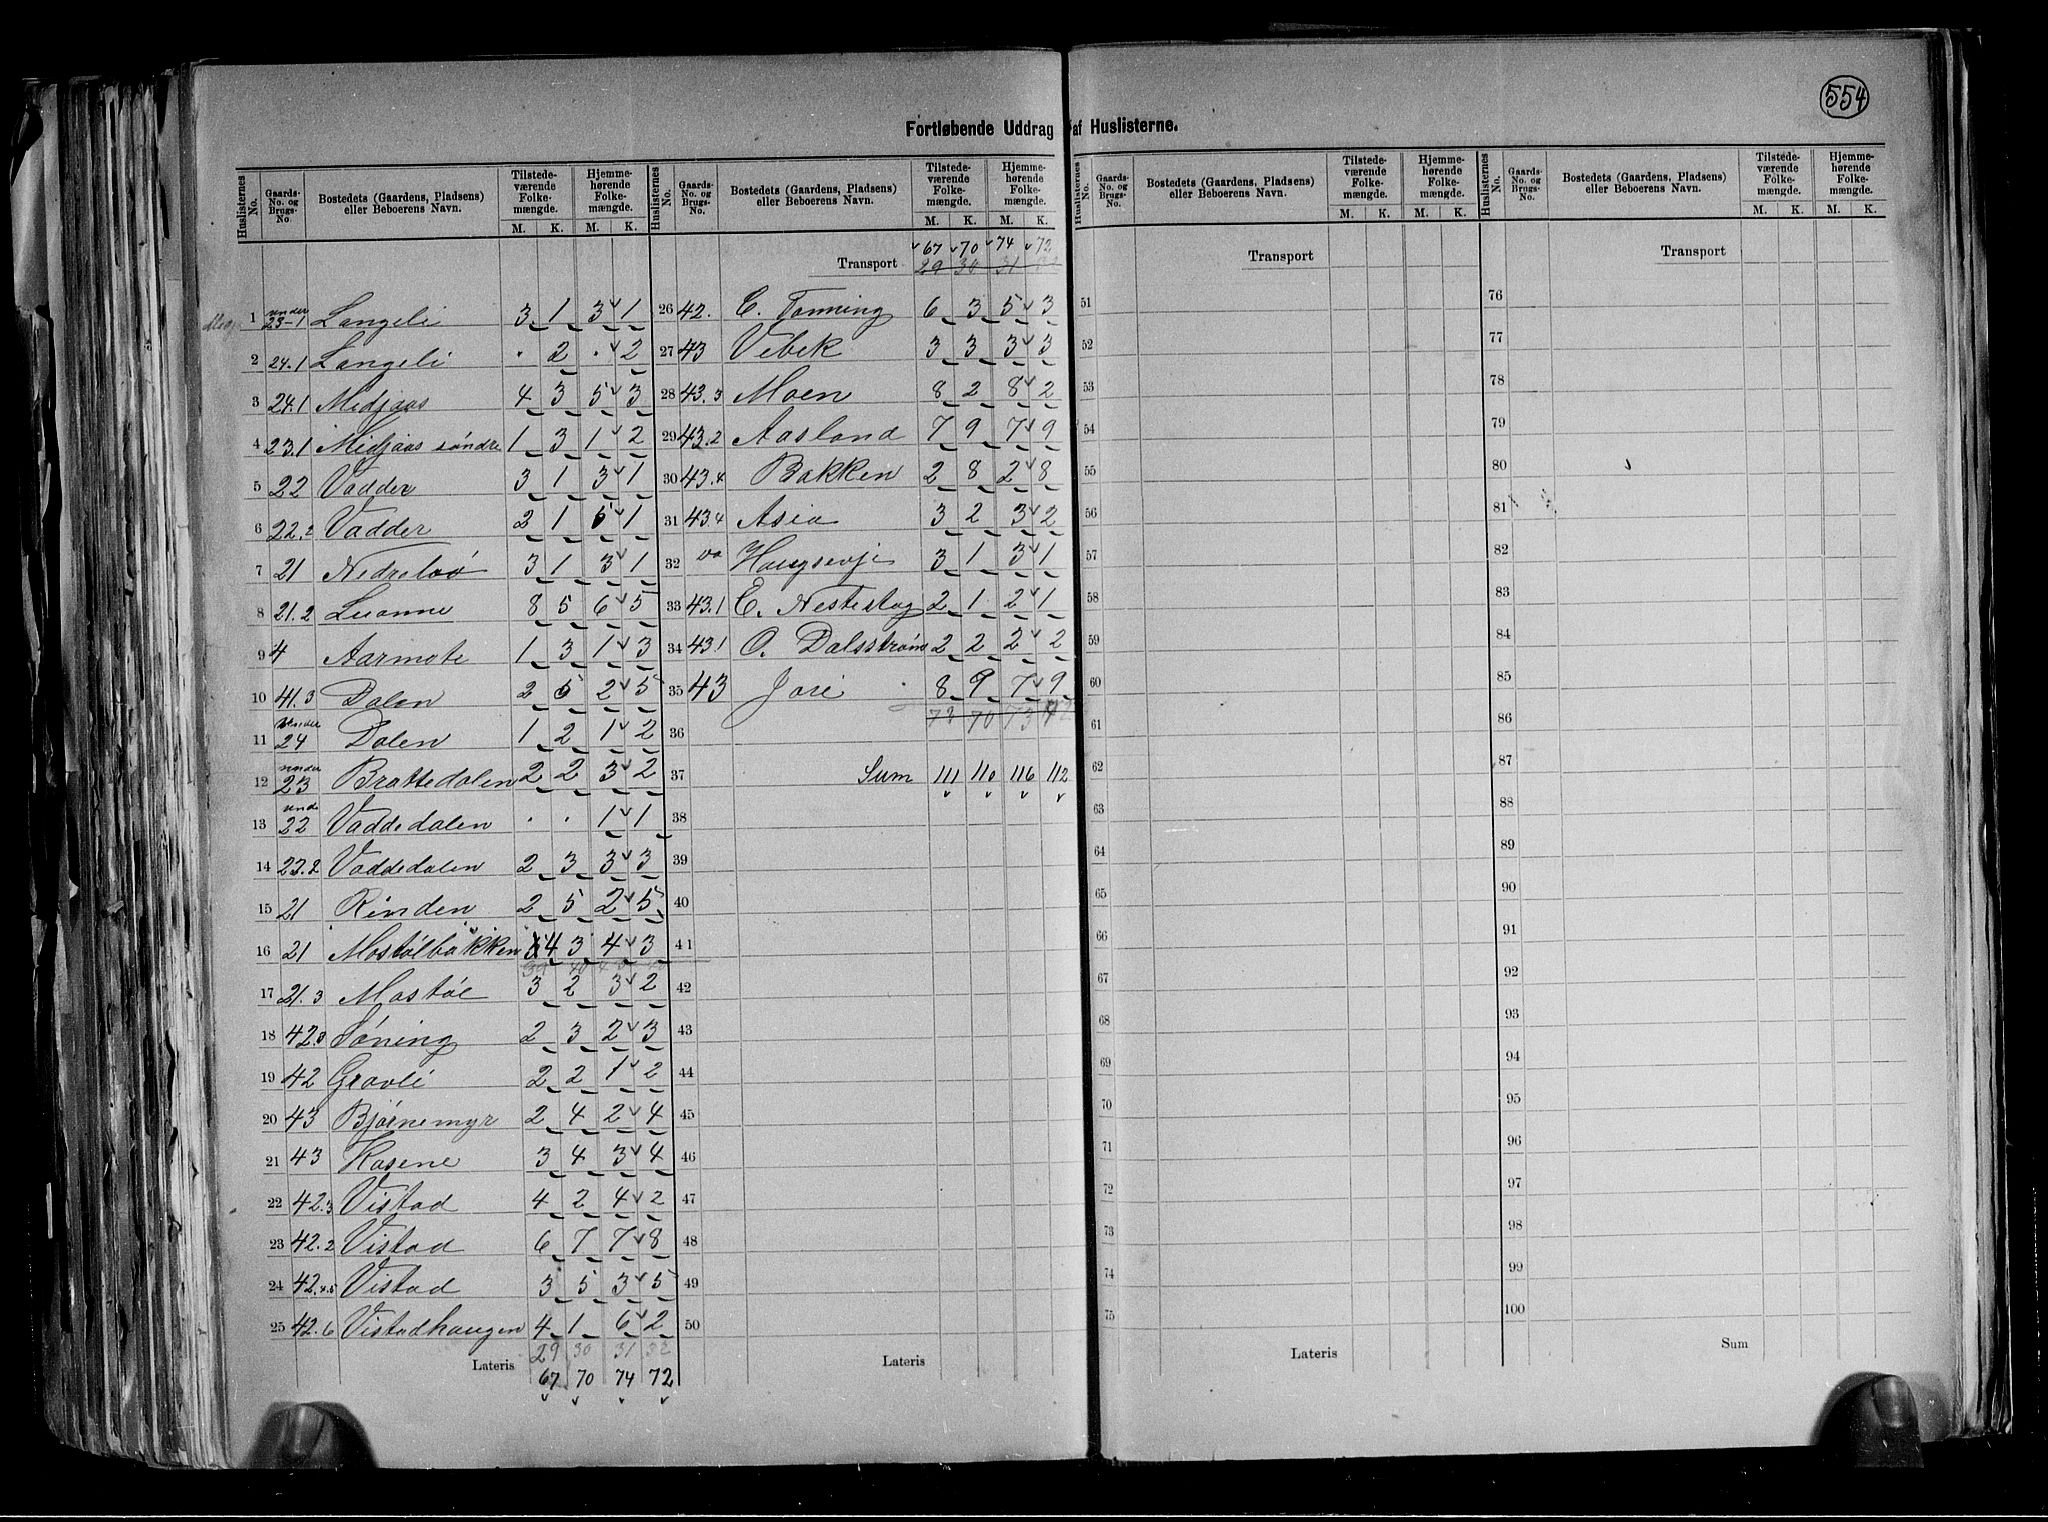 554
Fortløbende Uddrag af Huslisterne.
Huslisternes No. Gaards-No. og Brugs-No. Bostedets (Gaardens, Pladsens) eller Beboerens Navn. Tilstedeværende Folkemængde. M. K. Hjemmehørende Folkemængde. M. K.
1 under 23-1 Langeli 3 1 3 1
2 24.1 Langeli . 2 . 2
3 24.1 Midjaas 4 3 5 3
4 23.1 Midjaas søndre 1 3 1 2
5 22 Vadder 3 1 3 1
6 22.2 Vadder 2 1 5 1
7 21 Nedreloo 3 1 3 1
8 21.2 Luanne 8 5 6 5
9 4 Aarmote 1 3 1 3
10 41.3 Dalen 2 5 2 5
11 under 24 Dalen 1 2 1 2
12 under 23 Brattedalen 2 2 3 2
13 unde 22 Vaddedalen . . 1 1
14 23.2 Vaddedalen 2 3 3 3
15 21 Rinden 2 5 2 5
16 21 Mostølbakken 4 3 4 3
17 21.3 Mostøl 3 2 3 2
18 42.8 Tøning 2 3 2 3
19 42 Gravli 2 2 1 2
20 43 Bjørnemyr 2 4 2 4
21 43 Kasene 3 4 3 4
22 42.3 Vistad 4 2 4 2
23 42.2 Vistad 6 7 7 8
24 42.4.5 Vistad 3 5 3 5
25 42.6 Vistadhaugen 4 1 6 2
Lateris 29 30 31 32
67 70 74 72
Huslisternes No. Gaards-No. og Brugs-No. Bostedets (Gaardens, Pladsens) eller Beboerens Navn. Tilstedeværende Folkemængde. M. K. Hjemmehørende Folkemængde. M. K.
67 70 74 72
Transport 29 30 31
26 42. C. Tønning 6 3 5 3
27 43 Vibek 3 3 3 3
28 43.3 Moen 8 2 8 2
29 43.2 Aasland 7 9 7 9
30 43.4 Bakken 2 8 2 8
31 43.4 Asia 3 2 3 2
32 Haugsevje 3 1 3 1
33 43.1 C. Nestestog 2 1 2 1
34 43.1 O. Dalsstrøm 2 2 2 2
35 43 Jore 8 9 7 9
73 70 73
36
37 Sum 111 110 116 112
38
39
40
41
42
43
44
45
46
47
48
49
50
Lateris
Huslisternes No. Gaards-No. og Brugs-No. Bostedets (Gaardens, Pladsens) eller Beboerens Navn. Tilstedeværende Folkemængde. M. K. Hjemmehørende Folkemængde. M. K.
Transport
51
52
53
54
55
56
57
58
59
60
61
62
63
64
65
66
67
68
69
70
71
72
73
74
75
Lateris
Huslisternes No. Gaards-No. og Brugs-No. Bostedets (Gaardens, Pladsens) eller Beboerens Navn. Tilstedeværende Folkemængde. M. K. Hjemmehørende Folkemængde. M. K.
Transport
76
77
78
79
80
81
82
83
84
85
86
87
88
89
90
91
92
93
94
95
96
97
98
99
100
Sum